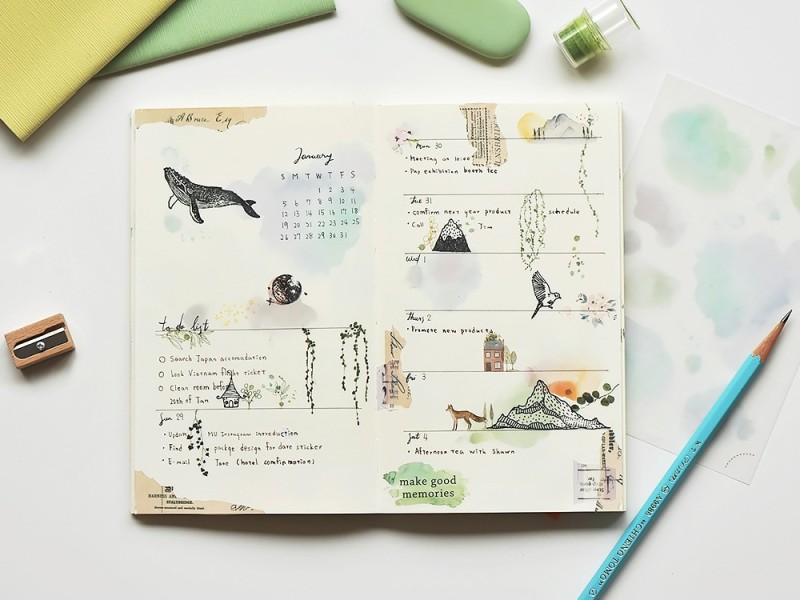 ABruce Esq
January
S M T W T F S
1 2 3 4
5 6 7 8 9 10 11
12 13 14 15 16 17 18
19 20 21 22 23 24 25
26 27 28 29 30 31
to do list
Search Japan accomodation
Look Vietnam flight ticket
Clean room before
20th of Jan
Sun 29
• Update MU Instagram introduction
• Find packge design for date sticker
• E-mail Jane (hotel confirmation)
Mon 30
• Meeting at 10:00
• Pay exhibition booth fee
Tue 31
• comfirm next year product schedule
• Call Jim
Wed 1
Thurs 2
• Promote new products
Fri 3
Sat 4
• Afternoon tea with Shawn
make good
memories